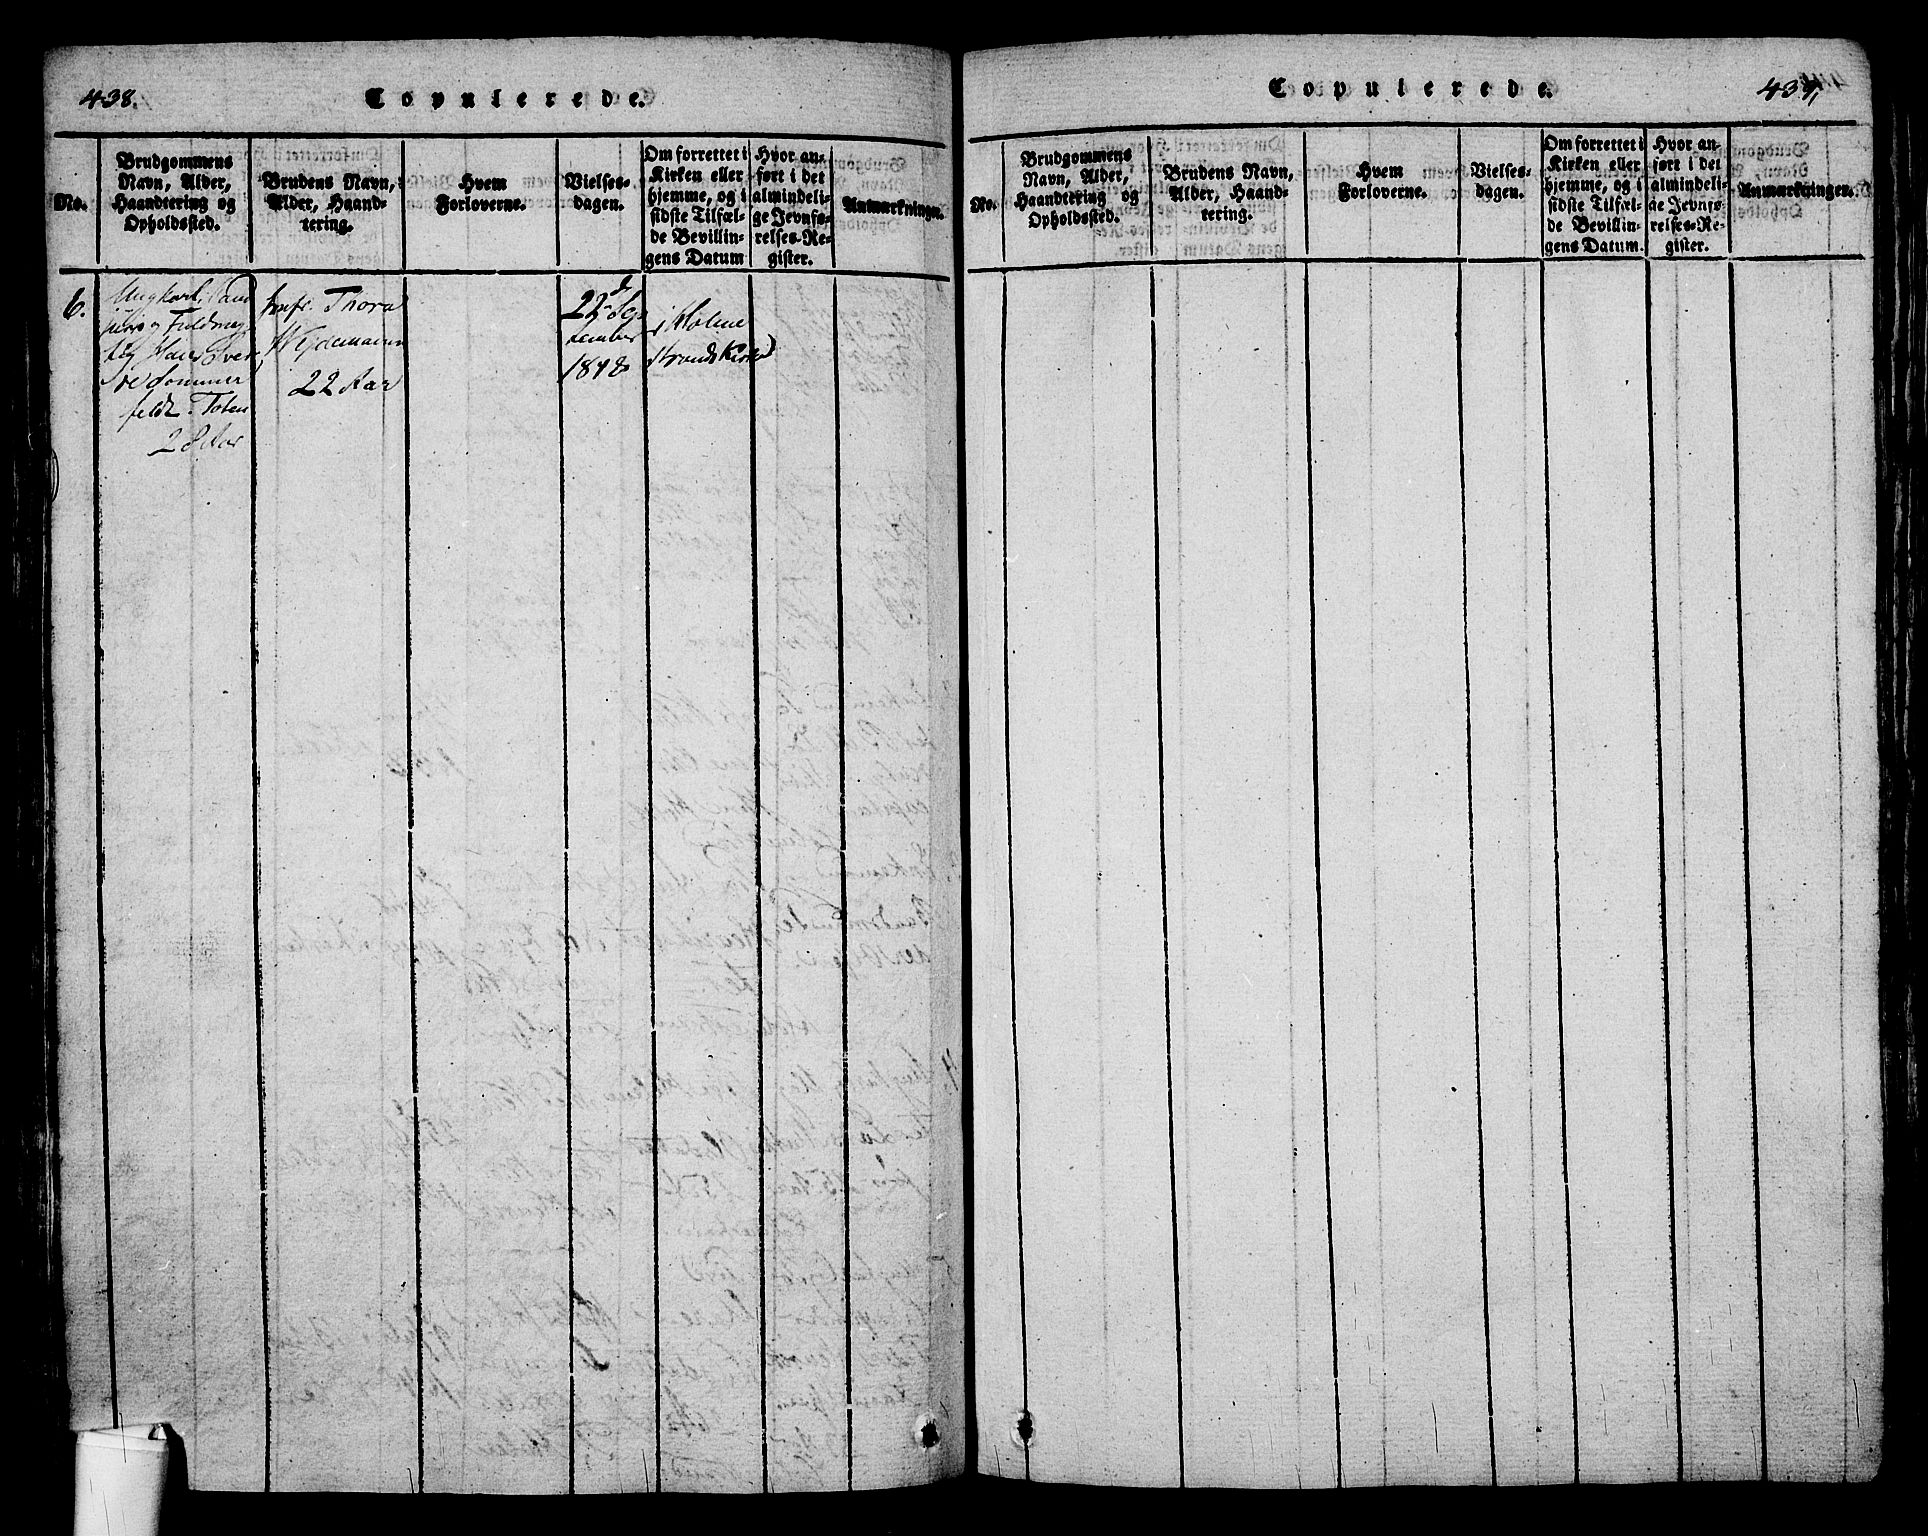 438.
Copulerede.
No.
Brudgommens
Navn, Alder,
Haandtering og
Opholdssted.
Brudens Navn,
Alder, Haand-
tering.
Hvem
Forloverne.
Vielses-
dagen.
Om forrettet i
Kirken eller
hjemme, og i
sidste Tilfæl-
de Bevillin-
gens Datum
Hvor an-
ført i det
almindeli-
ge Jevnfø-
relses-Re-
gister.
Anmærkninger.
6.
Ungkarl,
og Fuldmæg
tig Hans
Sommer
feldt. Toten
28 Aar
Jomfr. Thora
Wedemann
22 Aar
22d Sep
tember
1848
i Holme
strands Kirke
Copulerede.
439,
No.
Brudgommens
Navn, Alder,
Haandtering og
Opholdssted.
Brudens Navn,
Alder, Haand-
tering.
Hvem
Forloverne.
Vielses-
dagen.
Om forrettet i
Kirken eller
hjemme, og i
sidste Tilfæl-
de Bevillin-
gens Datum.
Hvor an-
ført i det
almindeli-
ge Jevnfø-
relses-Re-
gister.
Anmærkninger.